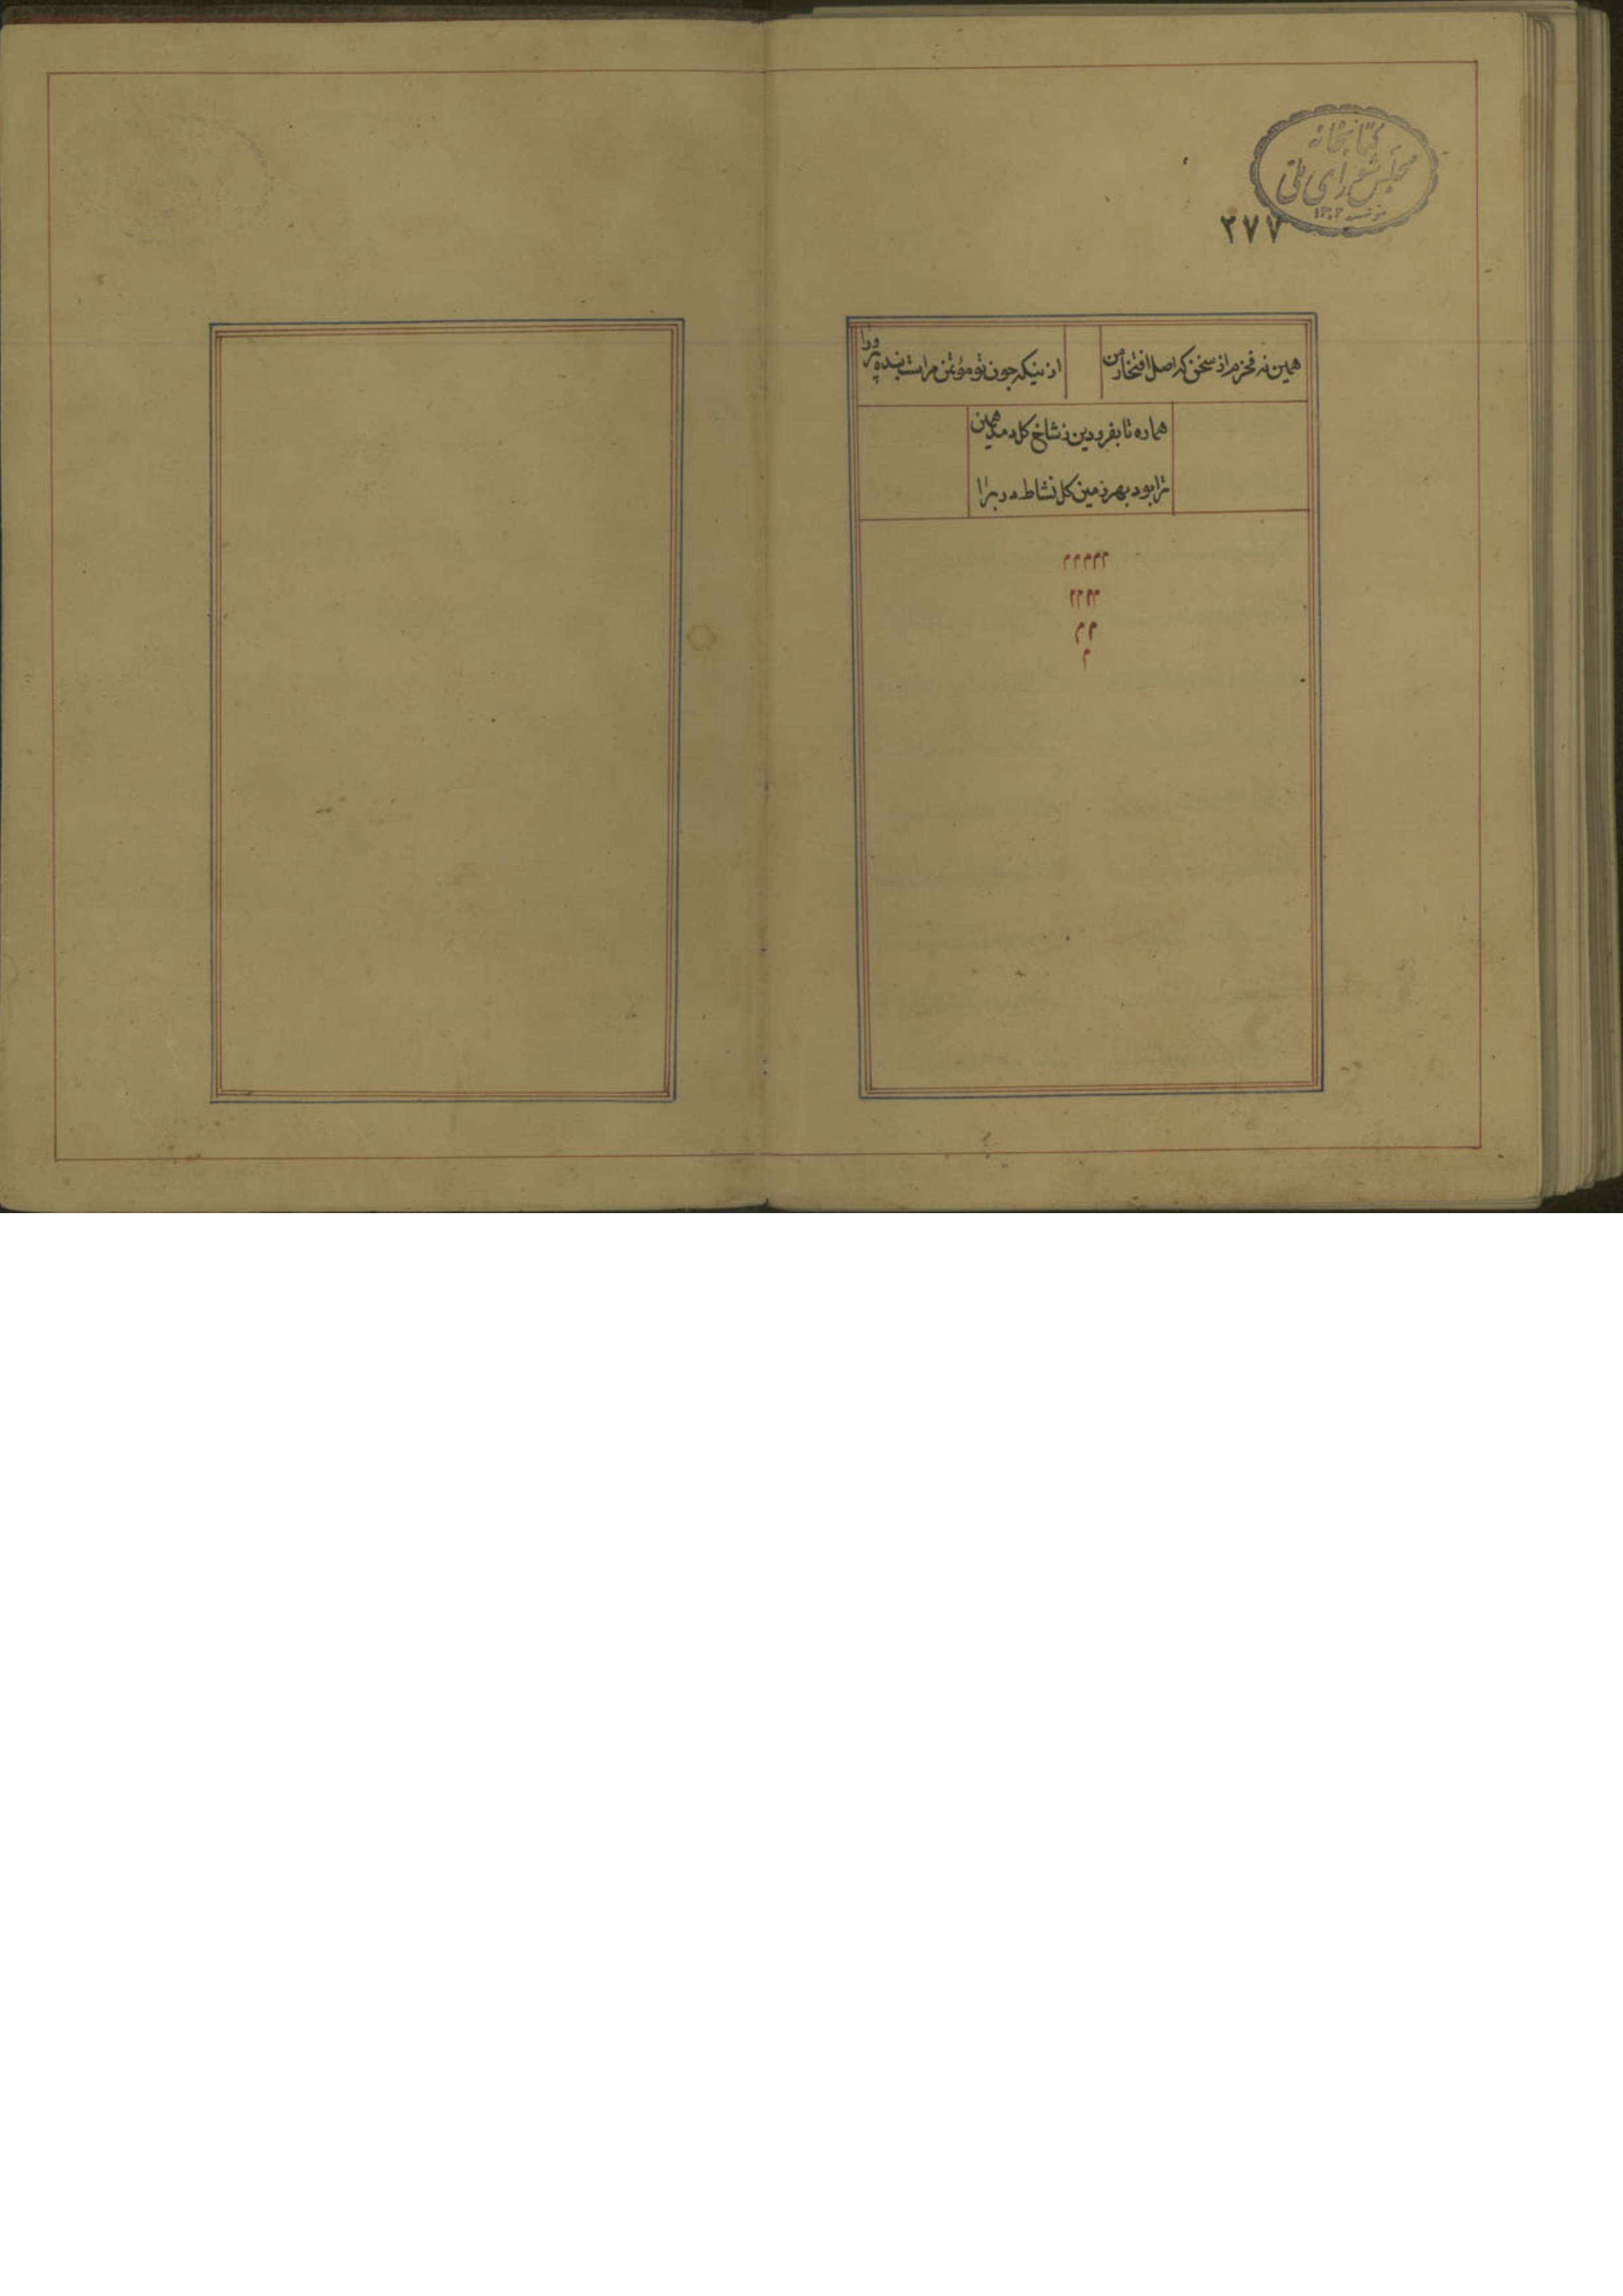 کتابخانه
مجلس شورای ملی
۱۳۰۲
۲۷۷
همین نه فخرم از سخن که اصل افتخار من
ازینکه جون تو مؤتمن مراست بنده پرورا
هماره تا بفرودین ز شاخ کل دمد همین
ترا بود بهر زمین کل نشاط در برا
م م م م م
م م م م
م م
م